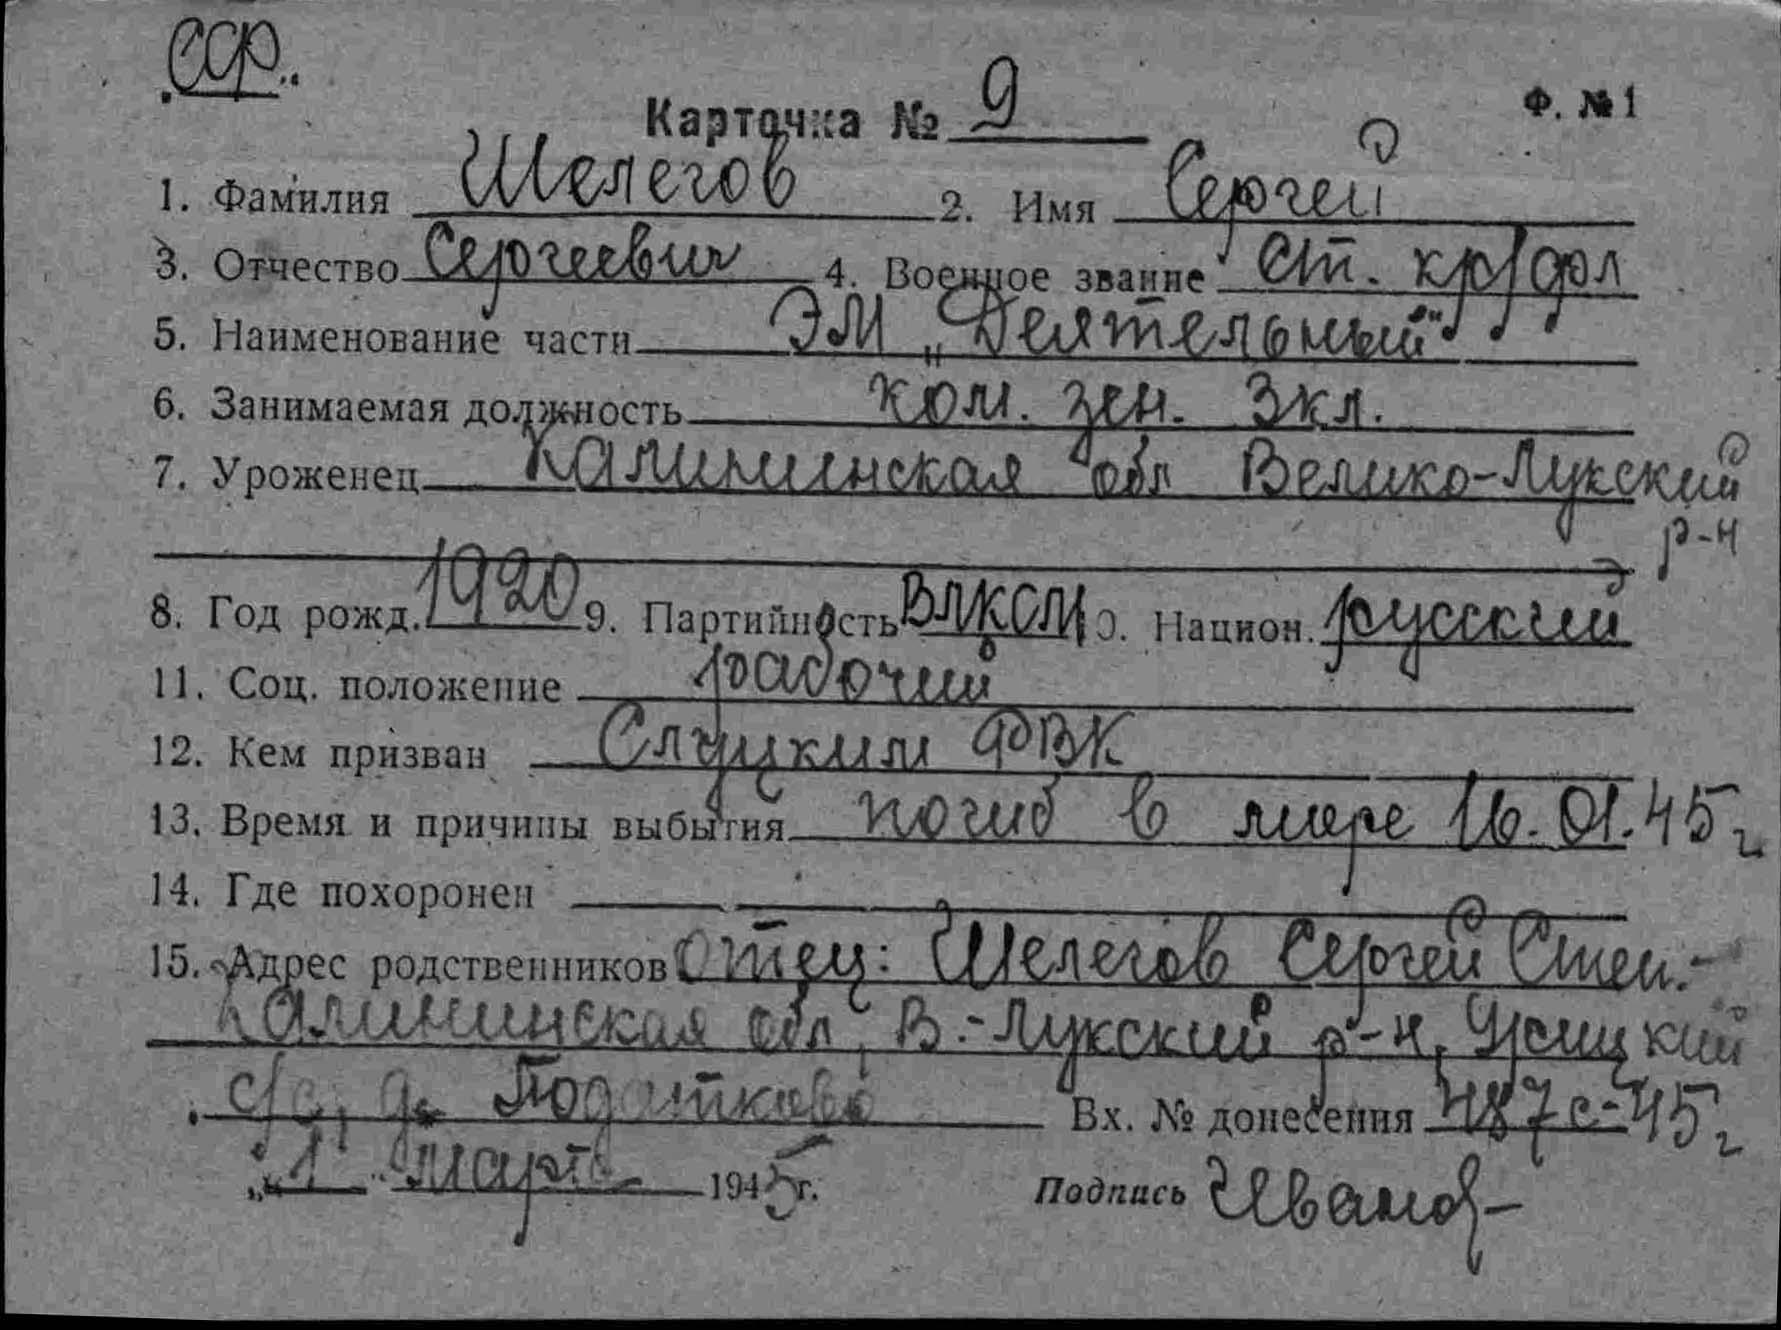 Карточка № 9 Ф. № 1
1. Фамилия Шелегов 2. Имя Сергей
3. Отчество Сергеевич 4. Военное звание ст. кр/фл
5. Наименование части ЭМ „Деятельный"
6. Занимаемая должность ком. зен. Зкл.
7. Уроженец Калининская обл Велико-Лукский
р-н
8. Год рожд. 1920 9. Партийность ВЛКСМ 10. Национ. русский
11. Соц. положение рабочий
12. Кем призван Слуцким РВК
13. Время и причины выбытия погиб в море 16.01.45 г
14. Где похоронен
15. Адрес родственников Отец: Шелегов Сергей Степ.-
Калининская обл, В.-Лукский р-н,
с/с, д. Вх. № донесения 487с-45 г
„1" марта 1945 г. Подпись Иванов